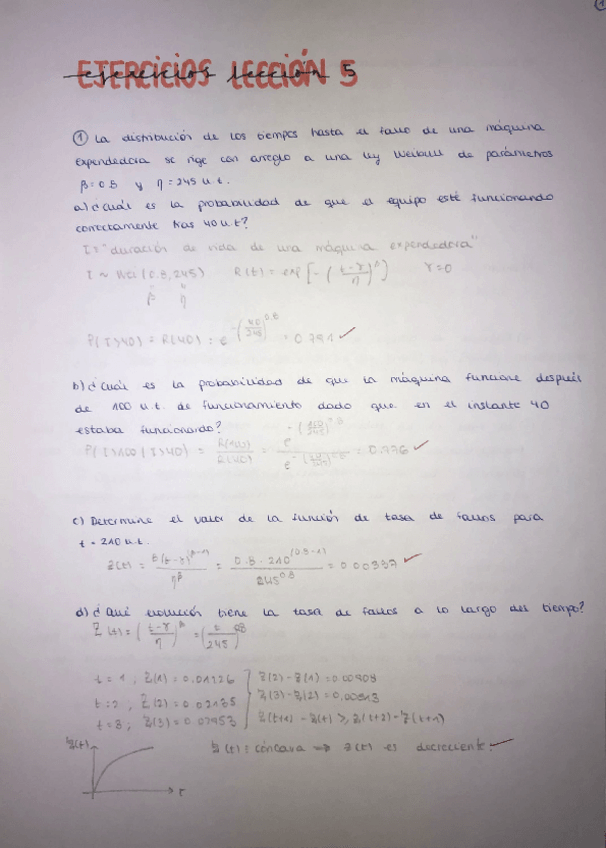 1
EJERCICIOS LECCIÓN 5
① La distribución de los tiempos hasta el fallo de una máquina
expendedora se rige con arreglo a una ley Weibull de parámetros
β=0.8 y η=245 u.t.
a) ¿Cuál es la probabilidad de que el equipo esté funcionando
correctamente tras 40 u.t?
T="duración de vida de una máquina expendedora"
T ~ Wei (0.8, 245) R(t) = exp [-((t-γ)/η)^β] γ=0
β η
P(T>40) = R(40) = e^-(40/245)^0.8 = 0.791 ✓
b) ¿Cuál es la probabilidad de que la máquina funcione después
de 100 u.t. de funcionamiento dado que en el instante 40
estaba funcionando?
P(T>100 | T>40) = R(100)/R(40) = = 0.776 ✓
c) Determine el valor de la función de tasa de fallos para
t = 210 u.t.
z(t) = β(t-γ)^(β-1)/η^β = 0.8·210^(0.8-1)/245^0.8 = 0.00337 ✓
d) ¿Qué evolución tiene la tasa de fallos a lo largo del tiempo?
Z(t) = ((t-γ)/η)^β = (t/245)^0.8
t = 1 ; Z(1) = 0.01226 Z(2) - Z(1) = 0.00909
t = 2 ; Z(2) = 0.02135 Z(3) - Z(2) =
t = 3 ; Z(3) = 0.02953 Z(t+1) - Z(t) ≥ Z(t+2) - Z(t+1)
Z(t) t
Z(t) : cóncava ⇒ z(t) es decreciente. ✓